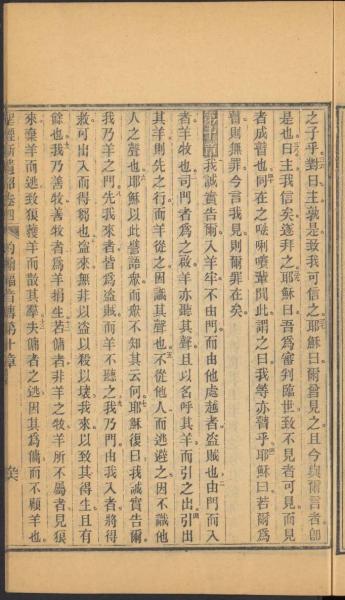 之子乎對曰主孰是致我可信之耶穌曰爾曾見之且今與爾言者卽
是也曰主我信矣遂拜之耶穌曰吾爲審判臨世致不見者可見而見
者成瞽也同在之𠵽唎㘔輩聞此謂之曰我等亦瞽乎耶穌曰若爾爲
瞽則無罪今言我見則爾罪在矣
第十章我誠實告爾入羊牢不由門而由他處越者盜賊也由門而入
者羊牧也司門者爲之啟羊亦聽其聲且以名呼其羊而引之出引出
其羊則先之行而羊從之因識其聲也不從他人而逃避之因不識他
人之聲也耶穌以此譬語衆而衆不知其云何耶穌復曰我誠實告爾
我乃羊之門先我來者皆爲盜賊而羊不聽之我乃門由我入者將得
救可出入而得芻也盜來無非以盜以殺以壞我來以致其得生且有
餘也我乃善牧善牧者爲羊捐生若傭者非羊之牧羊所不屬者見狼
來棄羊而逃致狼獲羊而散其羣夫傭者之逃因其爲傭而不顧羊也
聖經新遺詔卷四 約翰福音傳第十章 矣